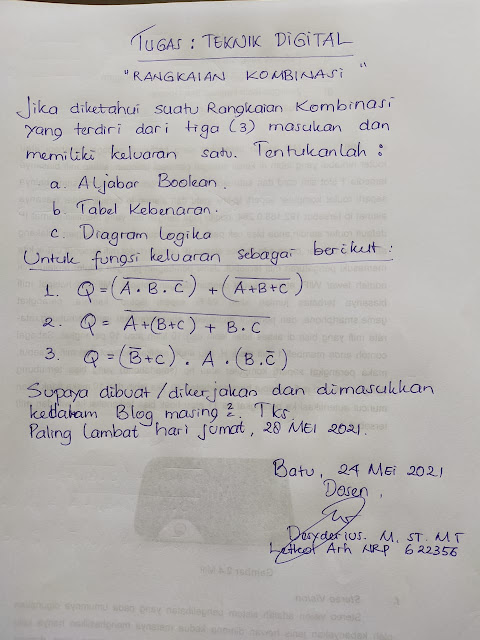 TUGAS : TEKNIK DIGITAL
"RANGKAIAN KOMBINASI"
Jika diketahui suatu Rangkaian Kombinasi
yang terdiri dari tiga (3) masukan dan
memiliki keluaran satu. Tentukanlah :
a. Aljabar Boolean.
b. Tabel Kebenaran.
c. Diagram logika
Untuk fungsi keluaran sebagai berikut :
1. Q = (A̅ ̅·̅ ̅B̅ ̅·̅ ̅C̅) + (A̅+̅B̅+̅C̅)
2. Q = A̅+̅(̅B̅+̅C̅)̅ ̅+̅ ̅B̅ ̅·̅ ̅C̅
3. Q = (B̅+C) . A . (B.C̅)
Supaya dibuat / dikerjakan dan dimasukkan
kedalam Blog masing². Tks.
Paling lambat hari jumat, 28 MEI 2021.
Batu, 24 MEI 2021
Dosen,
M. ST. MT
Letkol Arh NRP 622356
Gambar 2.4
Servo